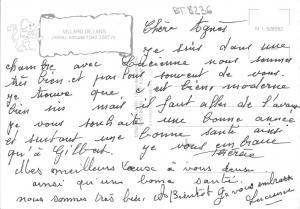 BT 8236
VILLARD DE LANS
Chère Agnès
je suis dans une
chambre avec Lucienne nous sommes
très bien et parlons souvent de vous.
je trouve que c'est bien moderne
bien sûr mais il faut aller de l'avant
je vous souhaite une bonne année
et surtout une bonne santé ainsi
qu'à Gilbert. je vous embrasse
Thérèse
Mes meilleurs vœux à vous deux
ainsi qu'une bonne santé.
nous sommes très bien. A Bientôt Je vous embrasse
Lucienne